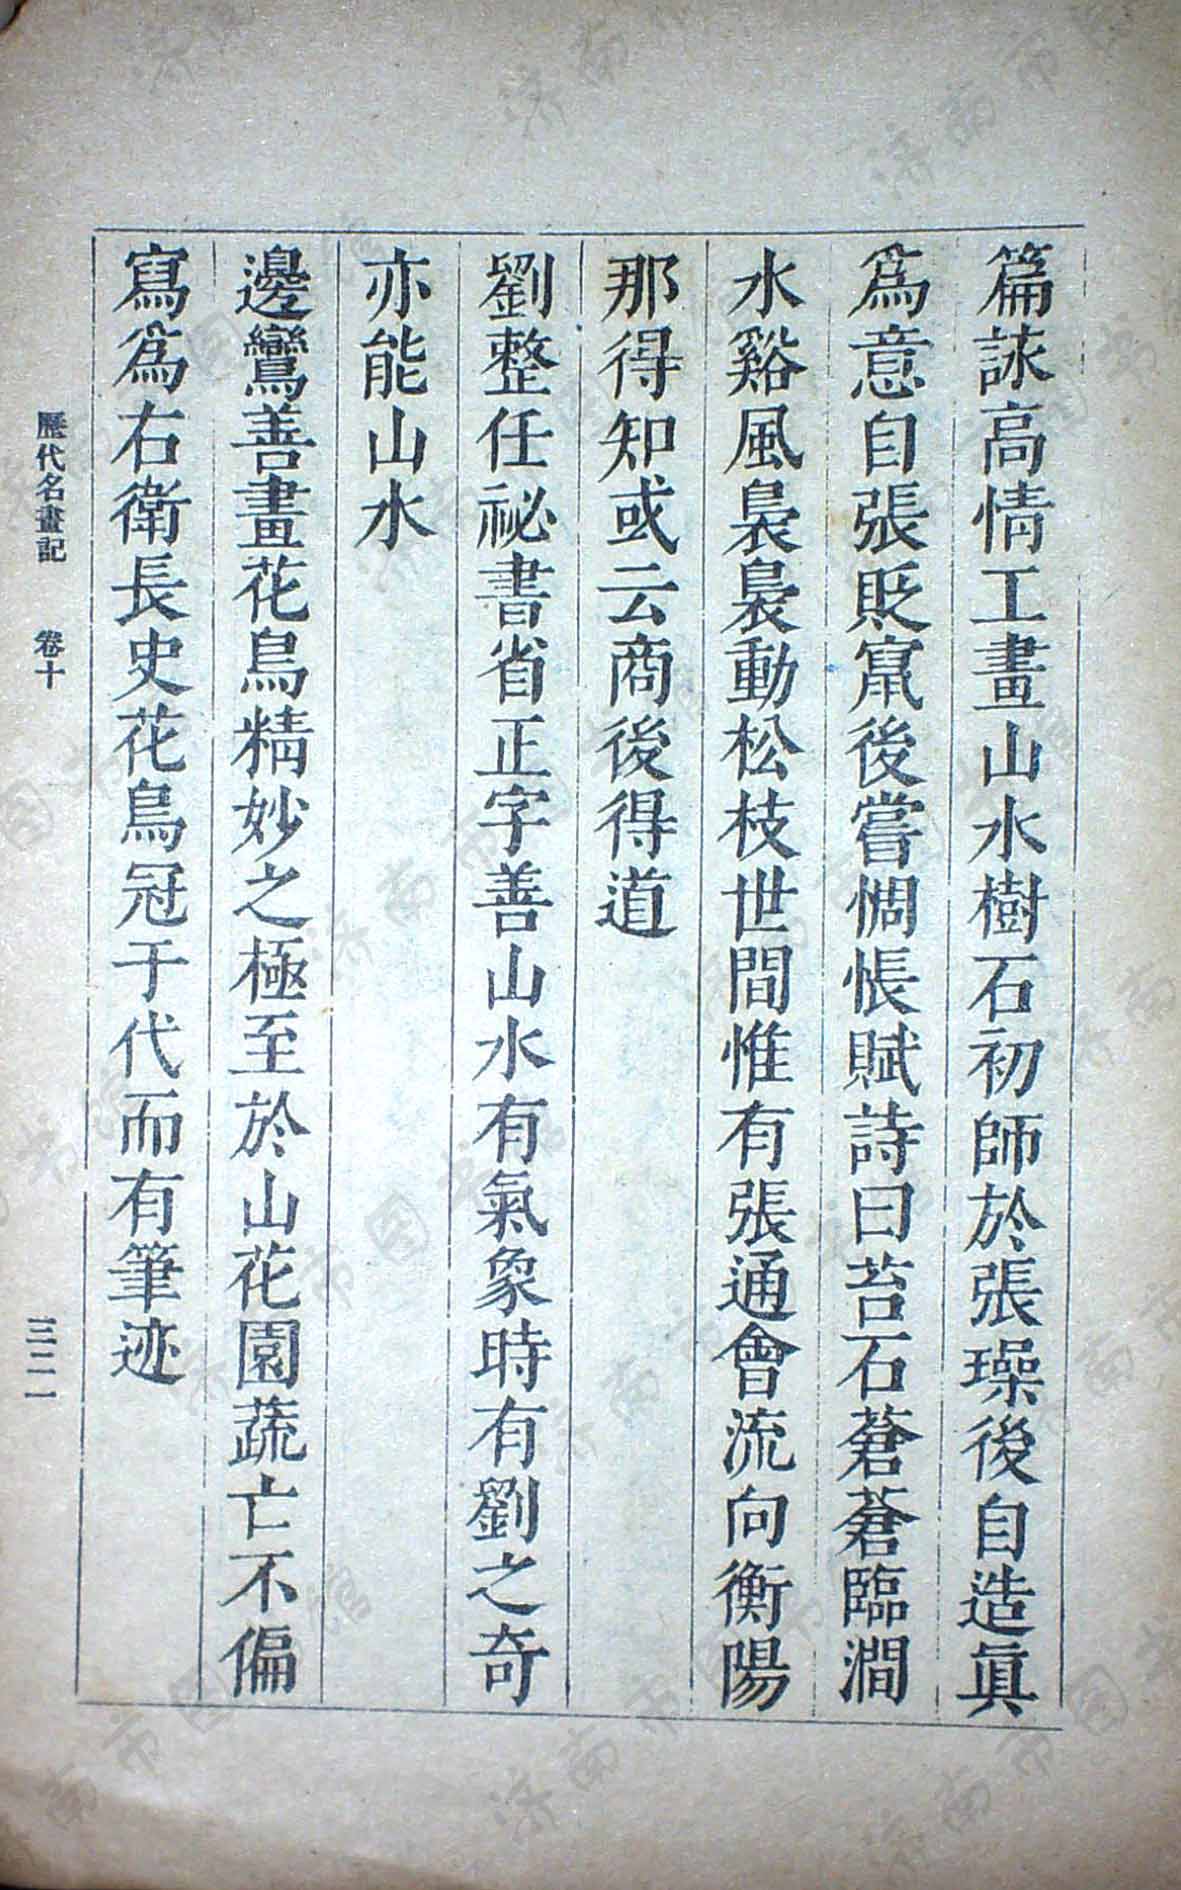 篇詠高情工畫山水樹石初師於張璪後自造眞
爲意自張貶竄後嘗惆悵賦詩曰苔石蒼蒼臨澗
水谿風裊裊動松枝世間惟有張通會流向衡陽
那得知或云商後得道
劉整任祕書省正字善山水有氣象時有劉之奇
亦能山水
邊鸞善畫花鳥精妙之極至於山花園蔬亡不偏
寫爲右衛長史花鳥冠于代而有筆迹
歷代名畫記 卷十 三二一
济南市图书馆